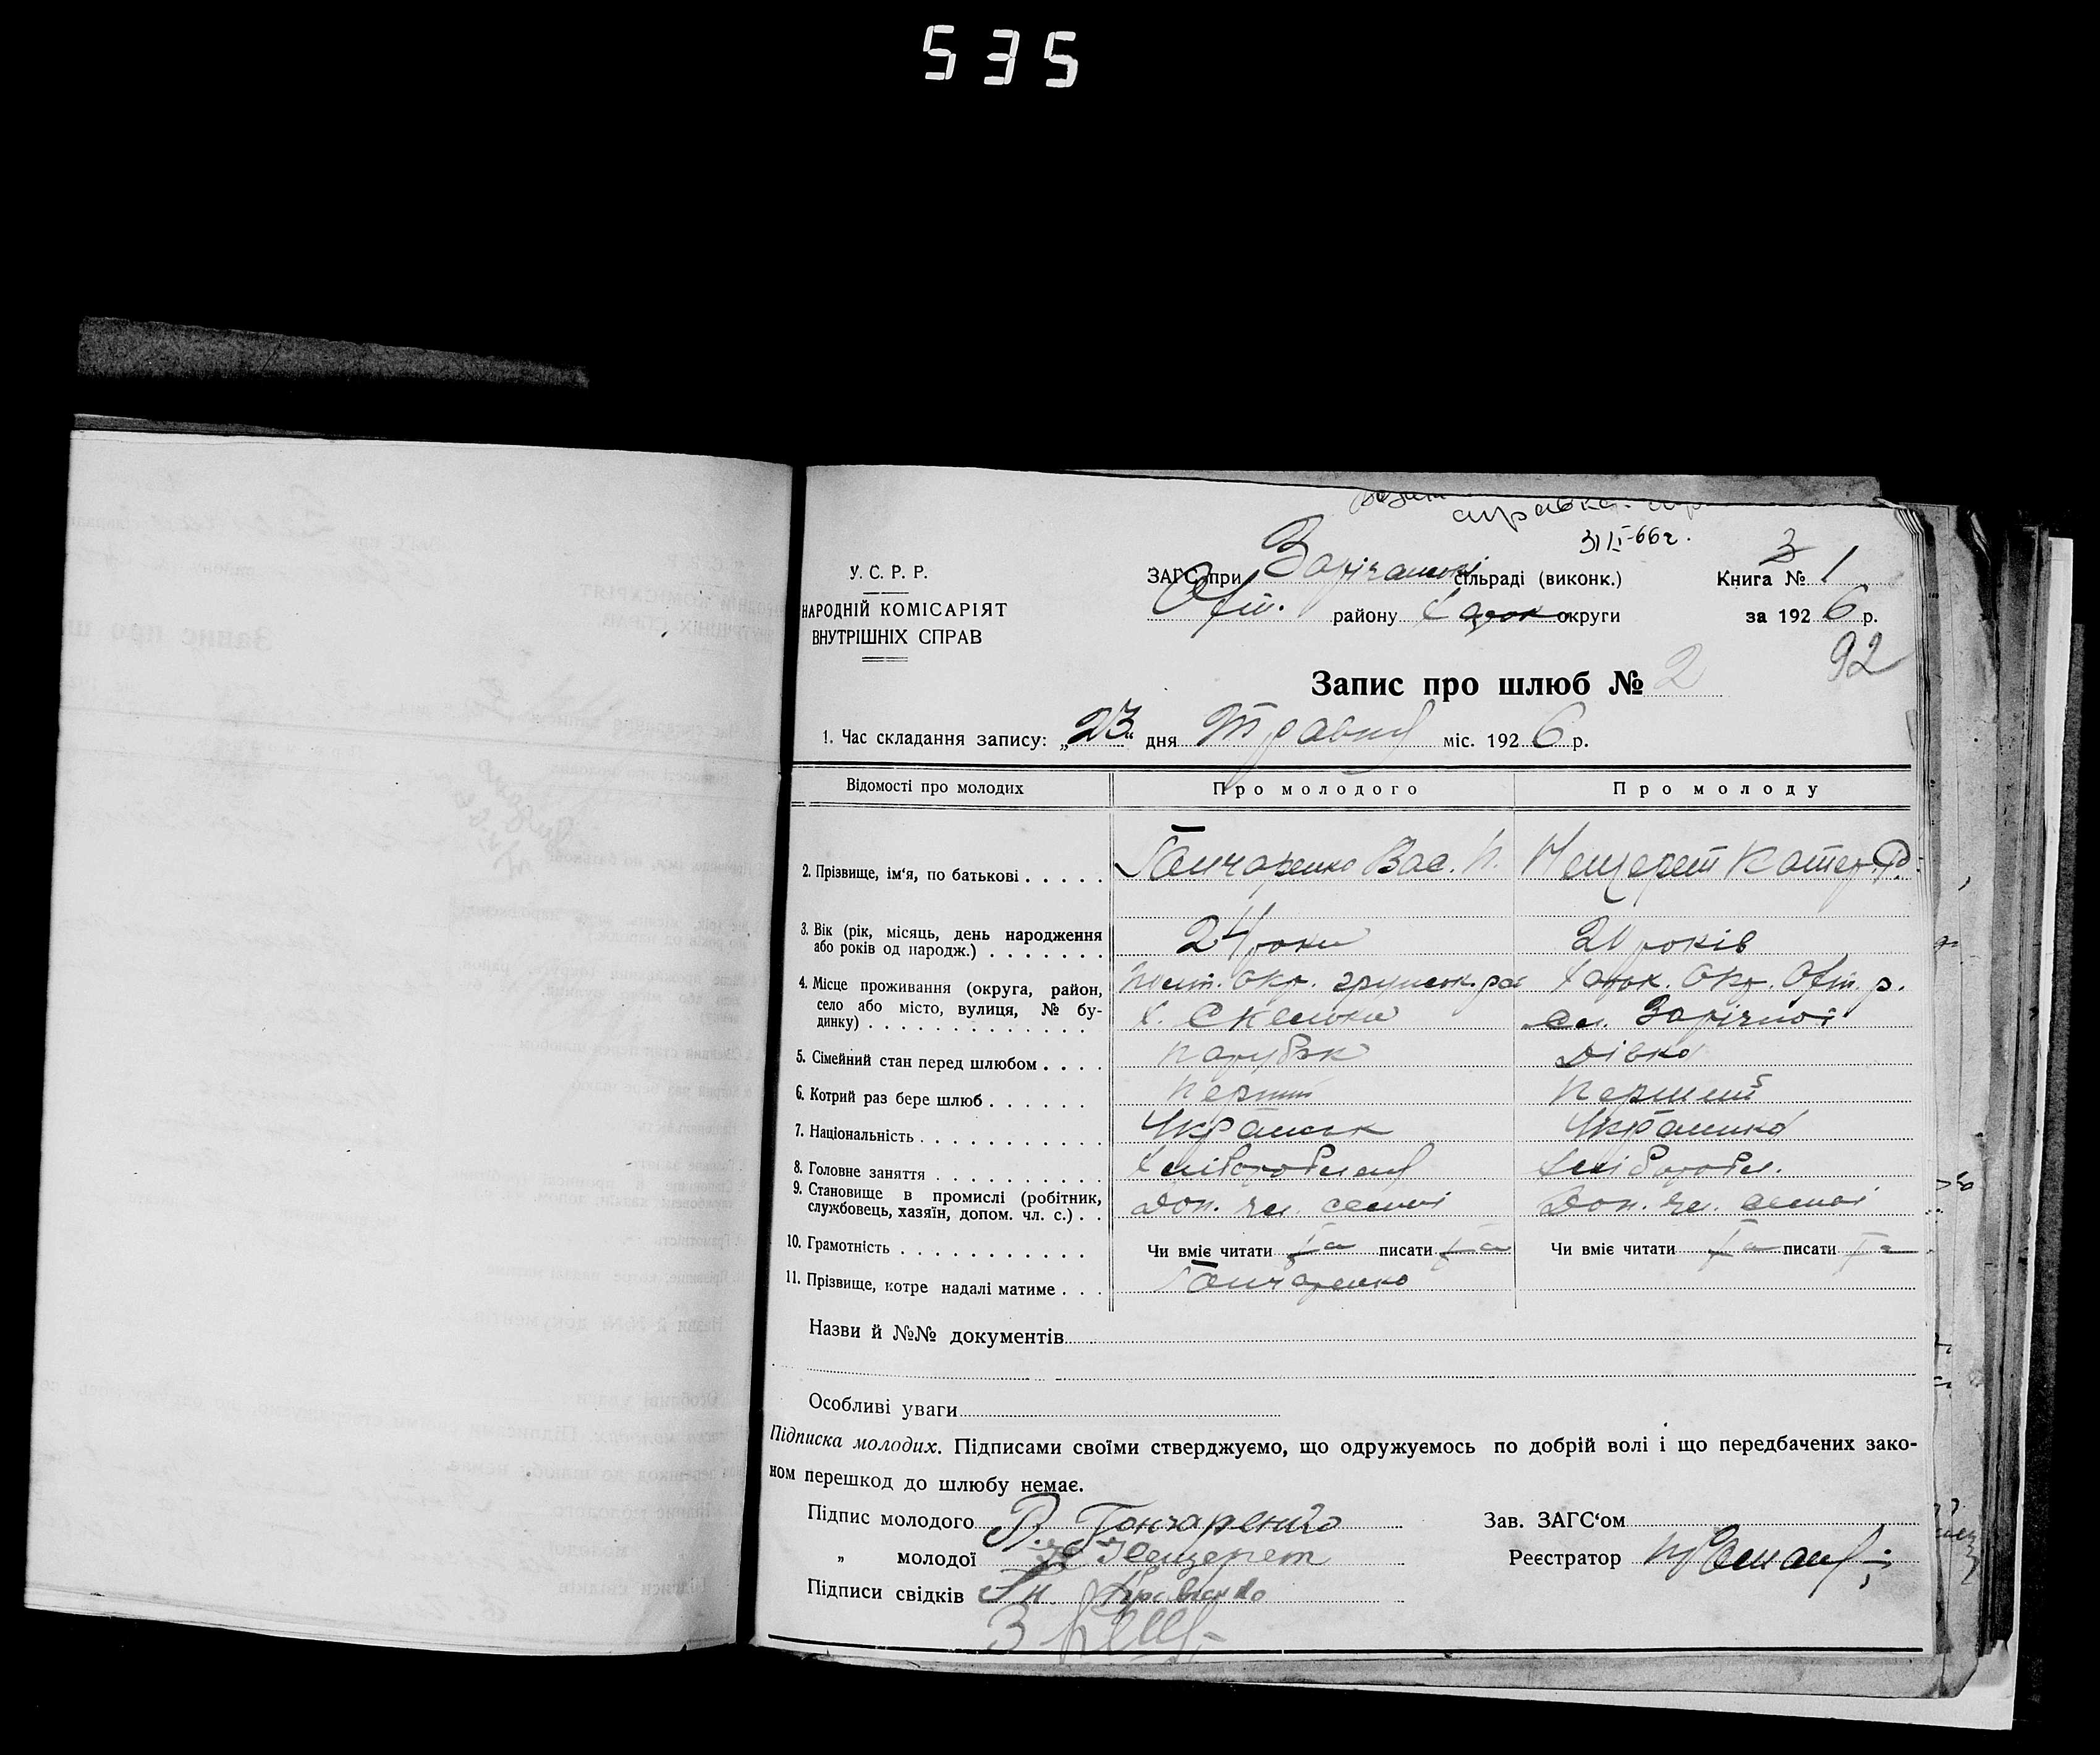 535
справка
31/I-66 г.
У. С. Р. Р.
НАРОДНІЙ КОМІСАРІЯТ
ВНУТРІШНІХ СПРАВ
ЗАГС при Зарічанськ сільраді (виконк.)
Охт. району Харьк округи
Книга № 3 1
за 1926 р.
92
Запис про шлюб № 2
1. Час складання запису: „23“ дня Травня міс. 1926 р.
Відомості про молодих Про молодого Про молоду
2. Прізвище, ім'я, по батькові . . . . . Гончаренко Вас. П. Кощерет Катер. Ф.
3. Вік (рік, місяць, день народження
або років од народж.) . . . . . . . 24 роки 20 років
4. Місце проживання (округа, район,
село або місто, вулиця, № бу-
динку) . . . . . . . . . . . . . .
Полт. Окр. грунськ. ра
х. Скельки
Харьк. Окр. Охт. р.
сл. Зарічної
5. Сімейний стан перед шлюбом . . . . парубок Дівка
6. Котрий раз бере шлюб . . . . . . перший перший
7. Національність . . . . . . . . . . . Українськ Українка
8. Головне заняття . . . . . . . . . . Хлібороблень Хлібороб.
9. Становище в промислі (робітник,
службовець, хазяїн, допом. чл. с.) . . Доп. чл. семьі Доп. чл. семьі
10. Грамотність . . . . . . . . . . . Чи вміє читати Так писати Так Чи вміє читати Так писати Так
11. Прізвище, котре надалі матиме . . . Гончаренко
Назви й №№ документів
Особливі уваги
Підписка молодих. Підписами своїми стверджуємо, що одружуємось по добрій волі і що передбачених зако-
ном перешкод до шлюбу немає.
Підпис молодого В. Гончаренко
Зав. ЗАГС'ом
„ молодої Кощерет
Реєстратор
Підписи свідків